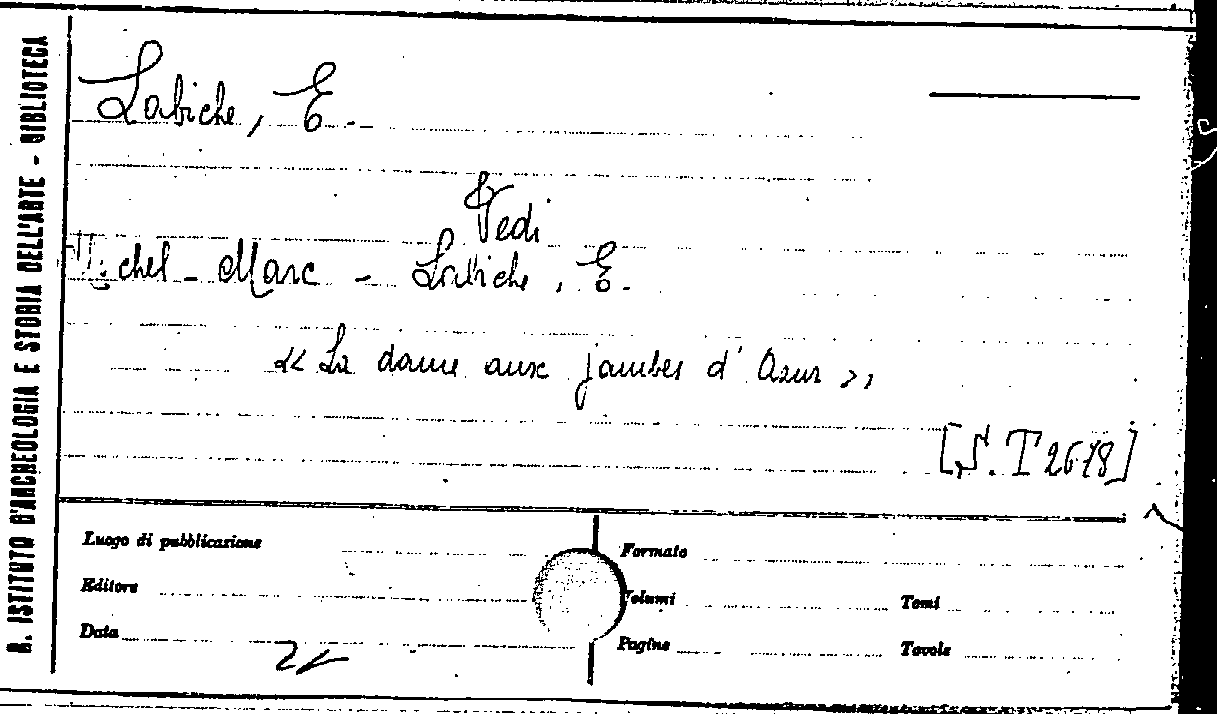 R. ISTITUTO D'ARCHEOLOGIA E STORIA DELL'ARTE - BIBLIOTECA
Labiche, E.
Vedi
Michel - Marc - Labiche, E.
« La dame aux jambes d'Azur »
[S. T 2618]
Luogo di pubblicazione
Formato
Editore
Volumi
Tomi
Data
Pagine
Tavole